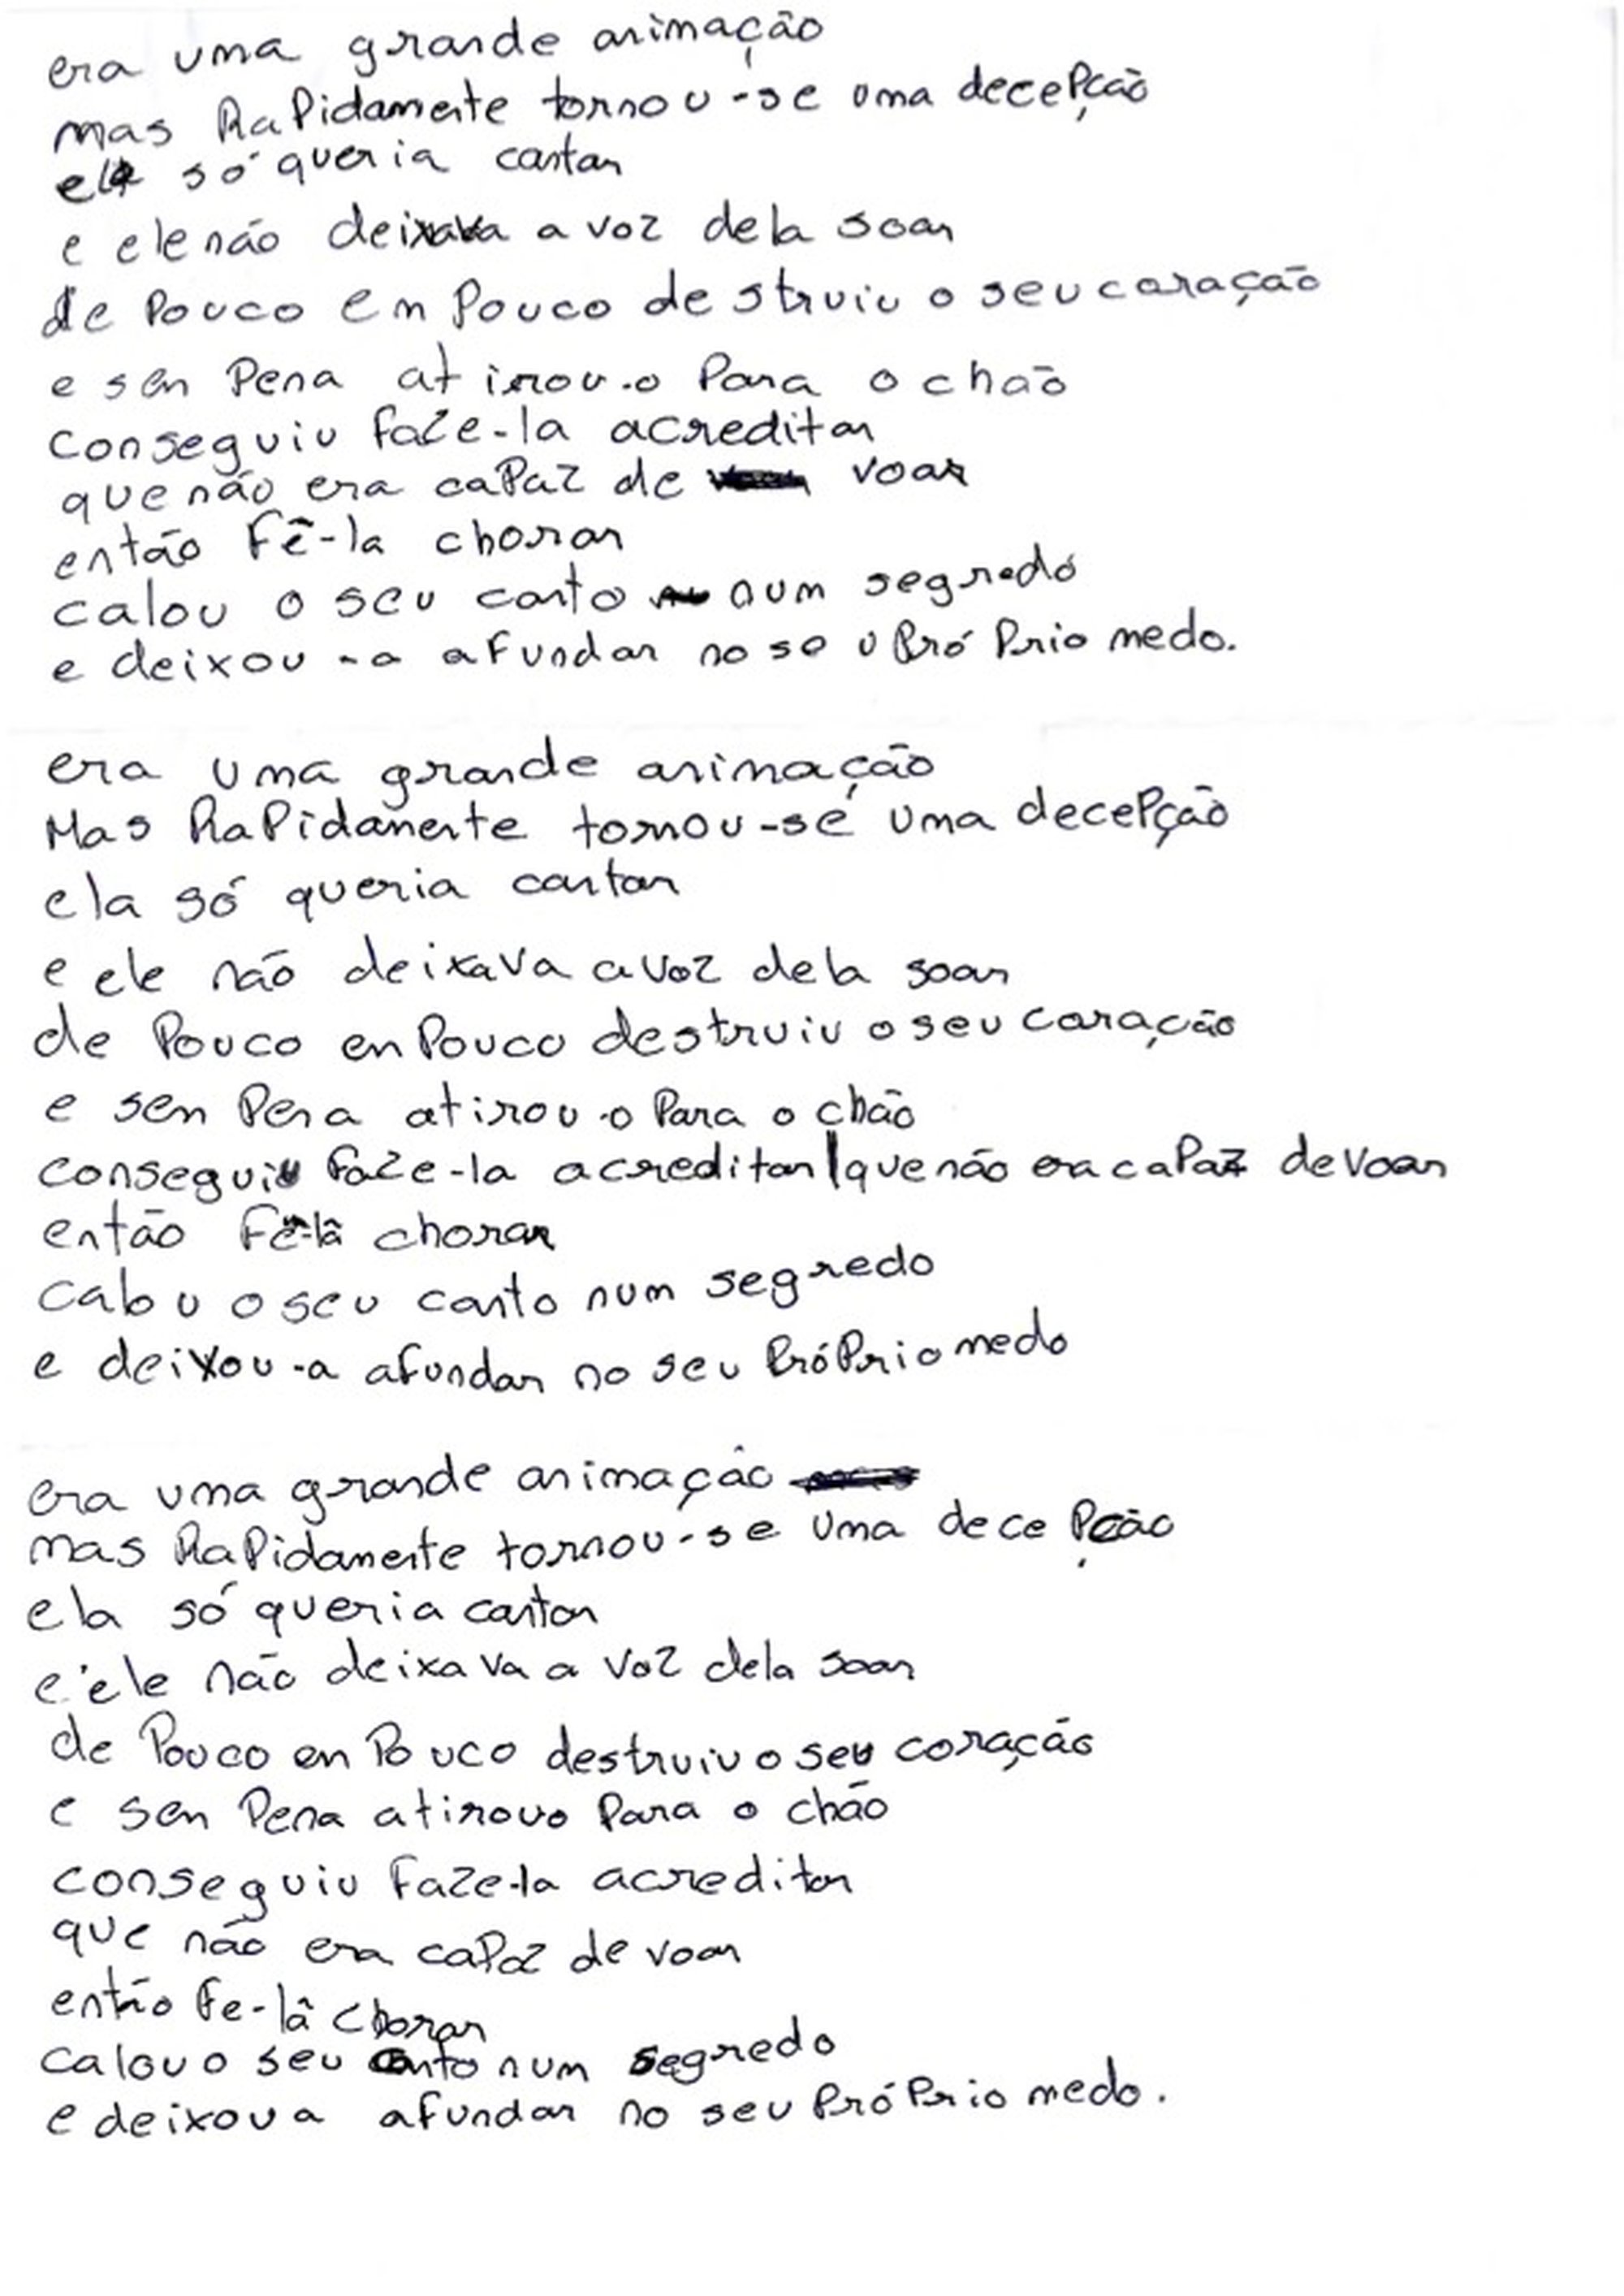 era uma grande animação
mas Rapidamente tornou-se uma decepção
ela só queria cantar
e ele não deixava a voz dela soar
de Pouco em Pouco destruiu o seu caração
e sem Pena atirou-o Para o chão
conseguiu faze-la acreditar
que não era capaz de voar
então fê-la chorar
calou o seu canto num segredo
e deixou-a afundar no seu Próprio medo.
era uma grande animação
Mas Rapidamente tornou-se uma decepção
ela só queria cantar
e ele não deixava a voz dela soar
de Pouco en Pouco destruiu o seu caração
e sem Pena atirou-o Para o chão
conseguiu faze-la acreditar|que não era capaz de voar
então fê-lâ chorar
calou o seu canto num segredo
e deixou-a afundar no seu Próprio medo
era uma grande animação
mas Rapidamente tornou-se uma decepção
ela só queria cantar
e ele não deixava a voz dela soar
de Pouco en Pouco destruiu o seu coração
e sem Pena atirouo Para o chão
conseguiu faze-la acreditar
que não era capaz de voar
então fe-lâ chorar
calou o seu canto num segredo
e deixou a afundar no seu Próprio medo.